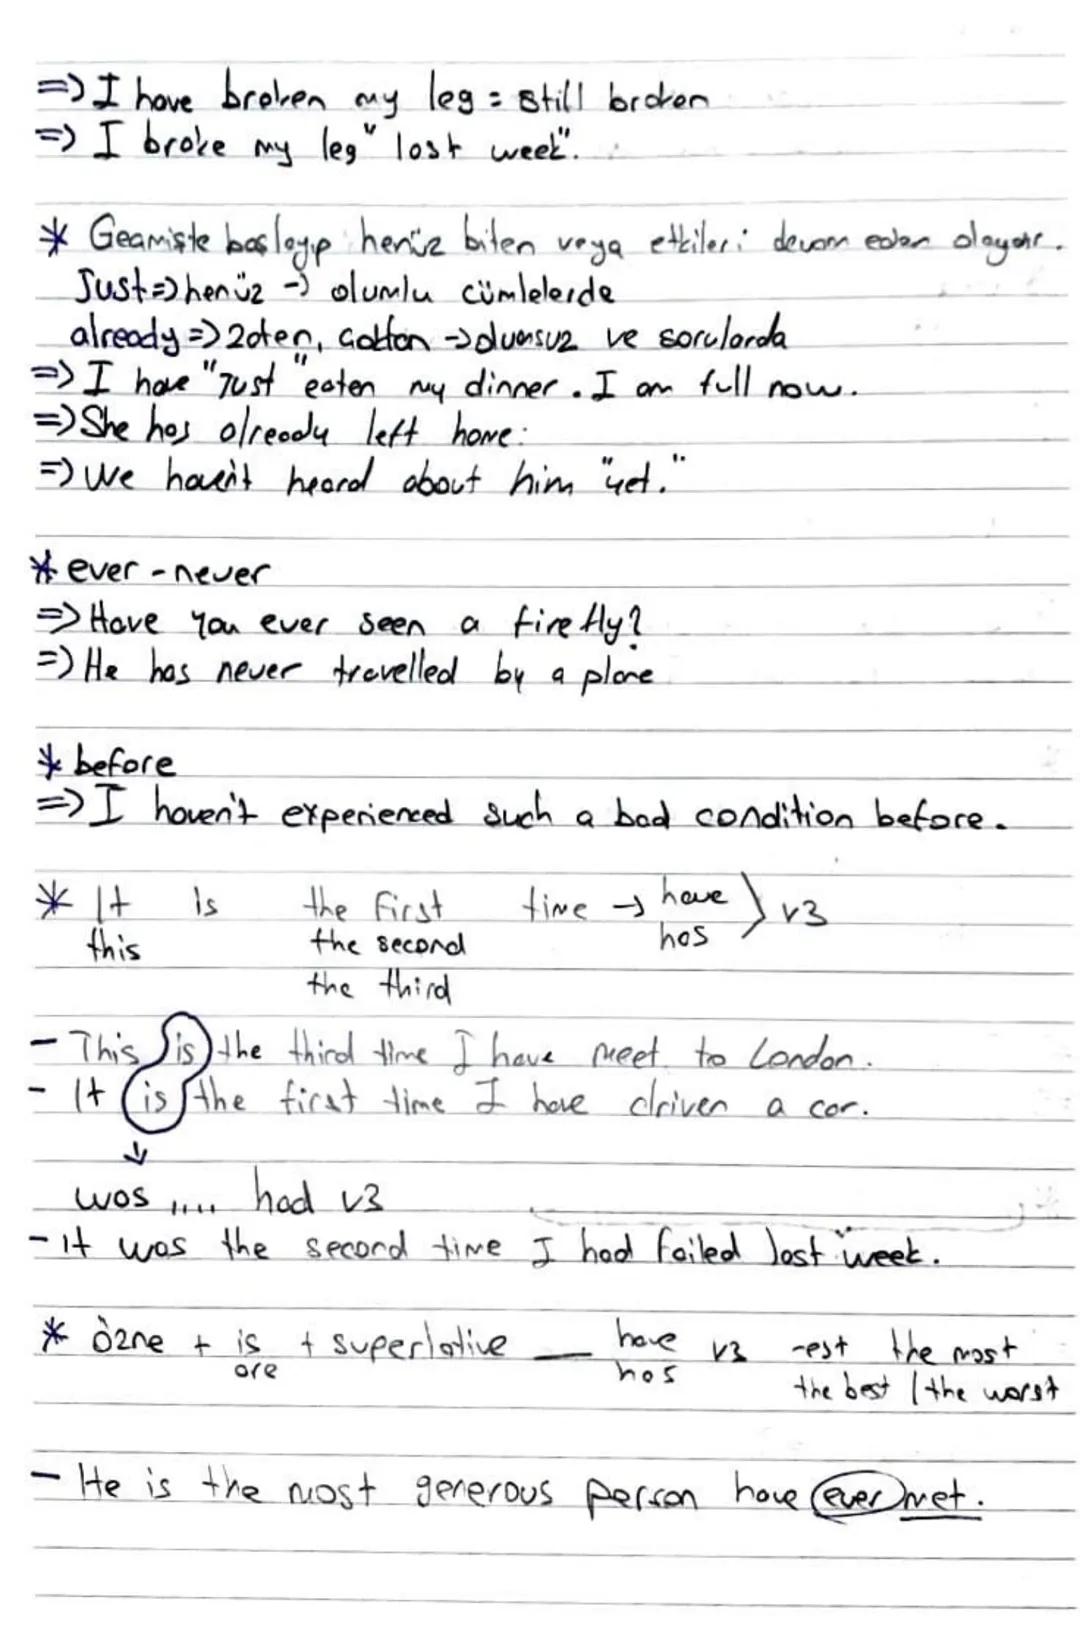 => I have broken my leg = still broken
=> I broke my leg "last week".
* Geçmişte başlayıp henüz biten veya etkileri devam eden olaylar.
Just => henüz -> olumlu cümlelerde
already => zaten, çoktan -> olumsuz ve sorularda
=> I have "just" eaten my dinner. I am full now.
=> She has already left home.
=> We haven't heard about him "yet."
* ever - never
=> Have you ever seen a firefly?
=> He has never travelled by a plane
* before
=> I haven't experienced such a bad condition before.
* It is the first time -> have } v3
this the second has
the third
- This is the third time I have meet to London.
- It is the first time I have driven a car.
↓
was ..... had v3
- It was the second time I had failed last week.
* Özne + is + superlative __ have v3 -est the most
are has the best / the worst
- He is the most generous person have ever met.